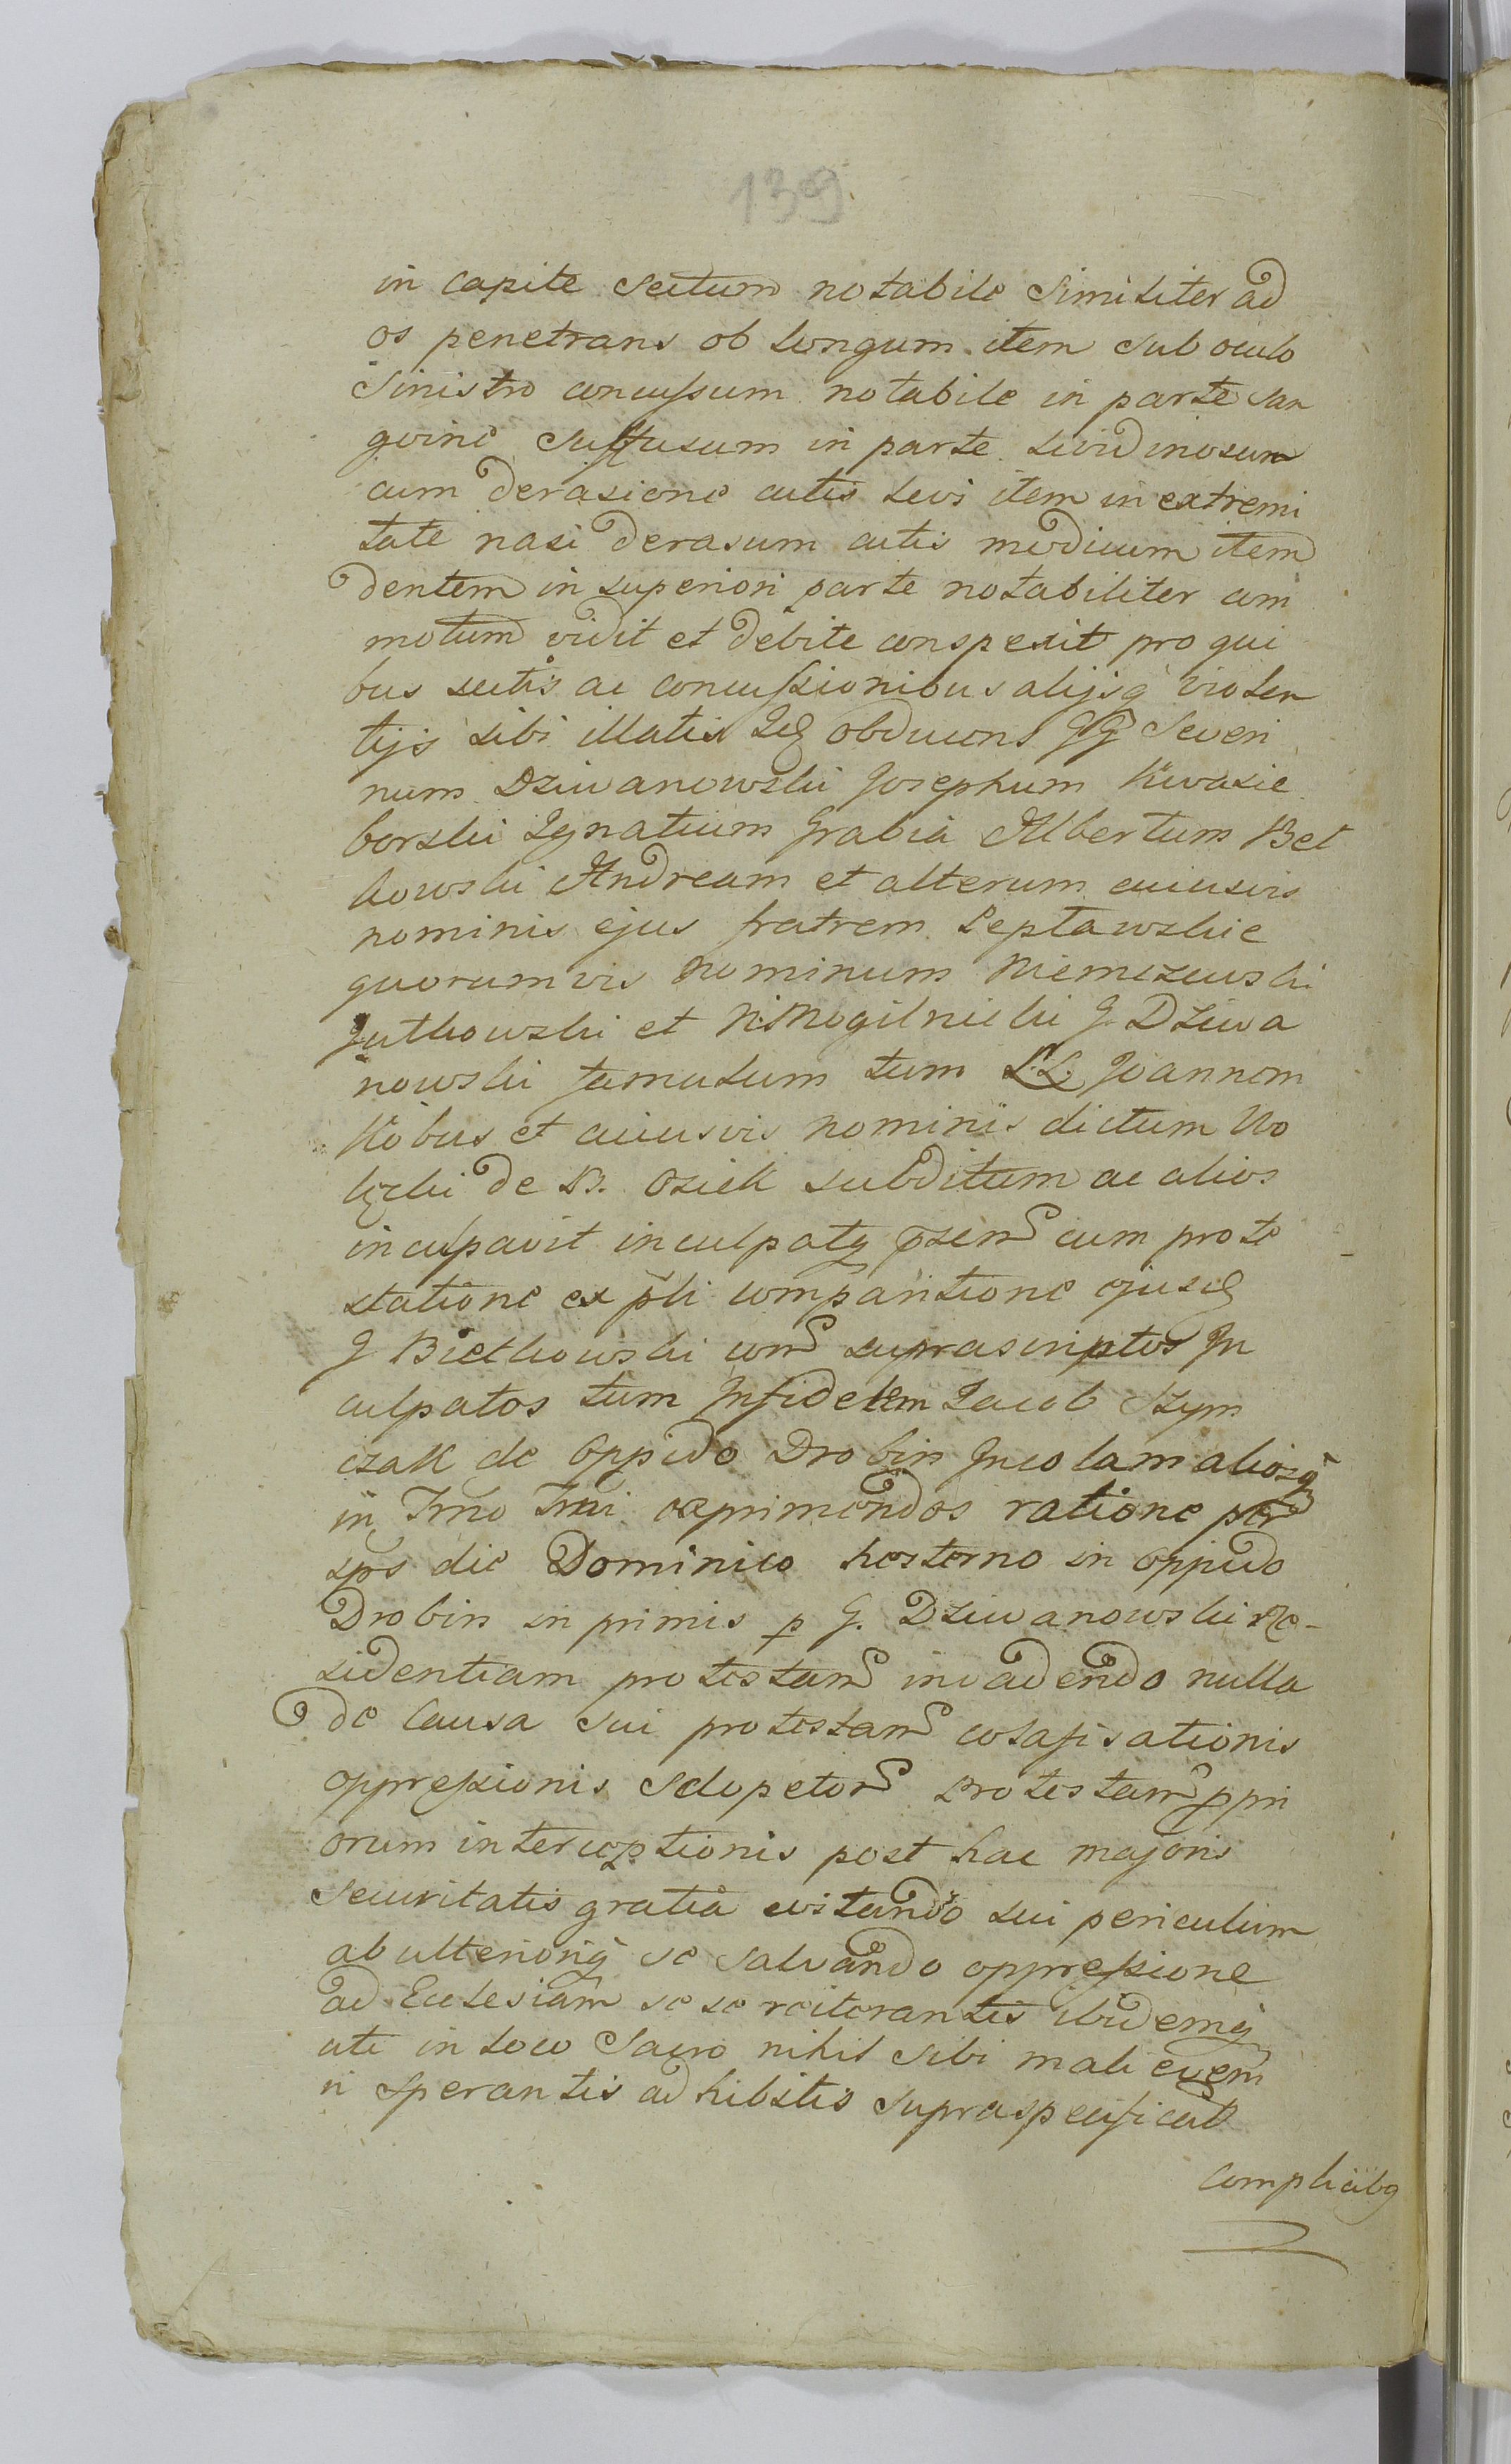 139
in capite sectum notabile similiter ad
os penetrans ob longum item sub oculo
sinistro concussum notabile in parte san
guine suffusum in parte lividinosum
cum derasione cutis levi item in extremi
tate nasi derasum cutis modicum item
dentem in superiori parte notabiliter com
motum vidit et debite conspexit pro qui
bus sectis ac concussionibus alijsq violen
tijs sibi illatis obducens GG Severi
num Dziwanowski Josephum Kwasie
borski Ignatium Grabia Albertum Bet
kowski Andream et alterum cuiusvis
nominis ejus fratrem Leptawskie
quorumvis nominum Niemczewski
Gutkowski et N. Mogilnicki G Dziwa
nowski famulum tum LL Joannem
Kobus et cuiusvis nominis dictum Wo
licki de B. Osiek subditum ac alios
inculpavit inculpatq pszem cum prote
statione ex pli comparitione ejusd
G Bietkowski con suprascriptos In
culpatos tum Infidelem Jacob Szym
czak de Oppido Drobin Incolam aliosq
in Trno Trali exprimendos ratione per
ipsos die Dominico hesterno in oppido
Drobin in primis p G. Dziwanowski Re-
sidentiam protestan invadendo nulla
de causa sui protestan colafisationis
oppressionis sclopetor protestan ppri
orum interceptionis post hac majoris
securitatis gratia evitando sui periculum
ab ulterioriq se salvando oppressione
ad Ecclesiam se se reiterantis ibidemq
uti in loco Sacro nihil sibi mali even
ri sperantis adhibitis supraspecificat
complicibq